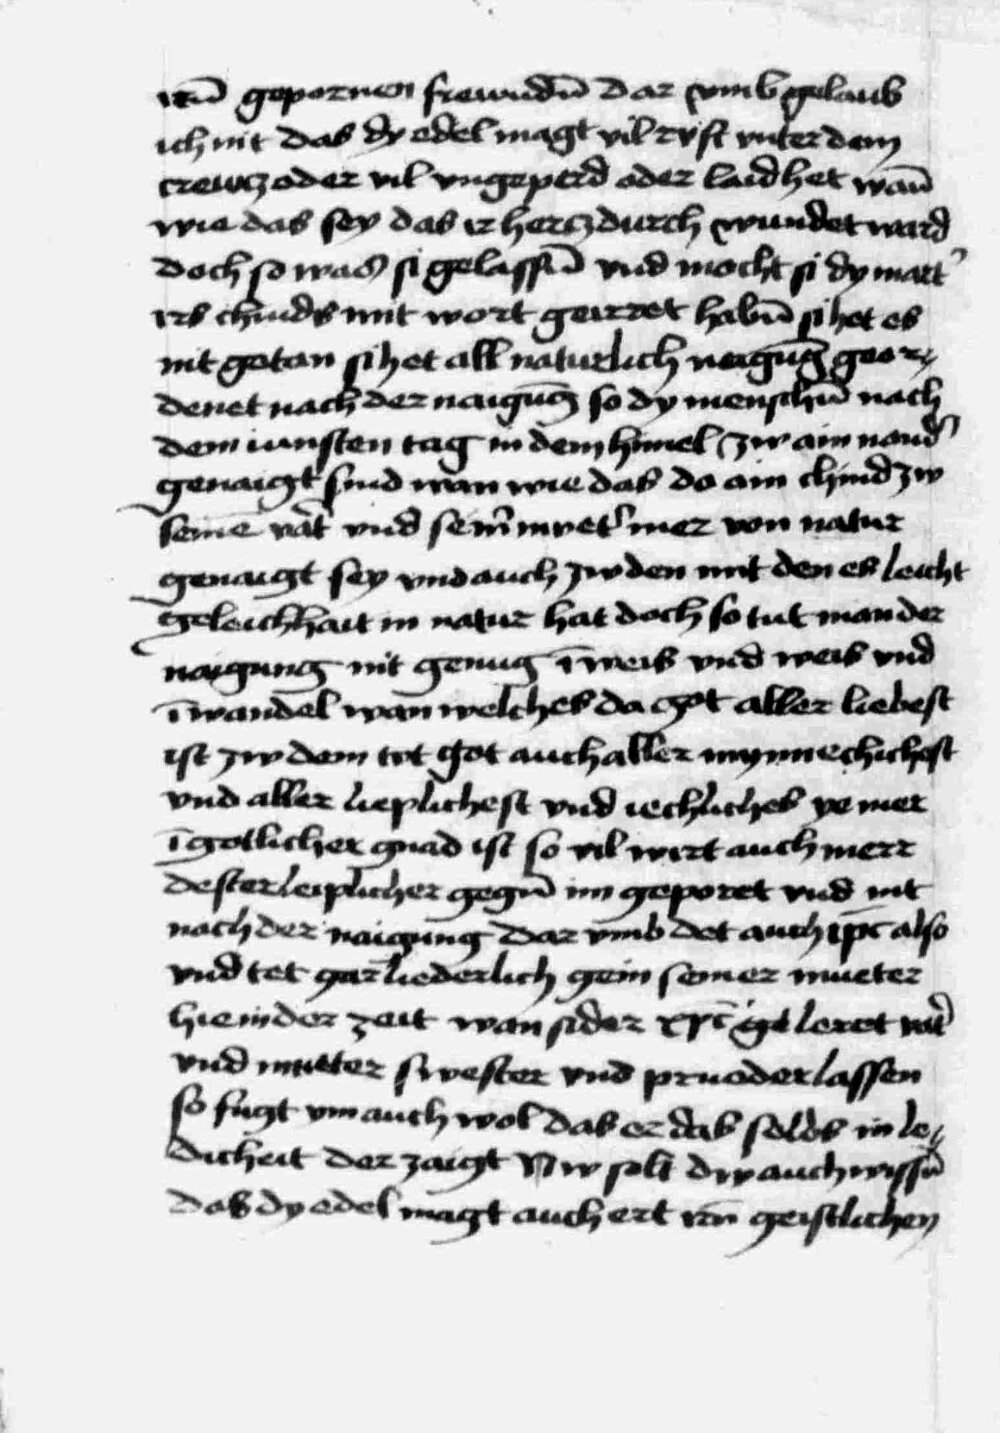 irē gepornen frewndē dar vmb gelaub
ich nit das dy edel magt vil rŭft vnter dem
crewcz oder vil vngeperd oder laid het wan̄
wie das sey das ir hercz durch wundet ward
doch so was si gelassen̄ vnd mocht si dy mart'
irs chinds mit wort geirret habn̄ si het es
nit getan si het all naturlich naigūg geor⸗
denet nach der naigūg so dy menschn̄ nach
dem iunsten tag in dem himel zw ain nand'
genaigt sind wan wie das do ain chind zw
seinē vat' vnd sein̄ mvet' mer von natur
genaigt sey vnd auch zw den mit den es leicht
geleichhait in natur hat doch so tut man der
naigung nit genug ī weis vnd weis vnd
ī wandel wan welches da got aller liebest
ist zw dem tvt got auch aller mynnechichest
vnd aller lieplichest vnd iechliches ye mer
ī gotlicher gnad ist so vil wirt auch merr
dester leiplicher gegn̄ im geporet vnd nit
nach der naigung dar vmb det auch xp̄c also
vnd tet gar liederlich gein seiner mueter
hie in der zeit wan sider xp̄c geleret vat'
vnd mutter swester vnd pruoder lassen
so fugt vm auch wol das er das selbs in le⸗
dicheit der zaigt Nw solt dw auch wissn̄
das dy edel magt auch ert irn̄ geistlichen